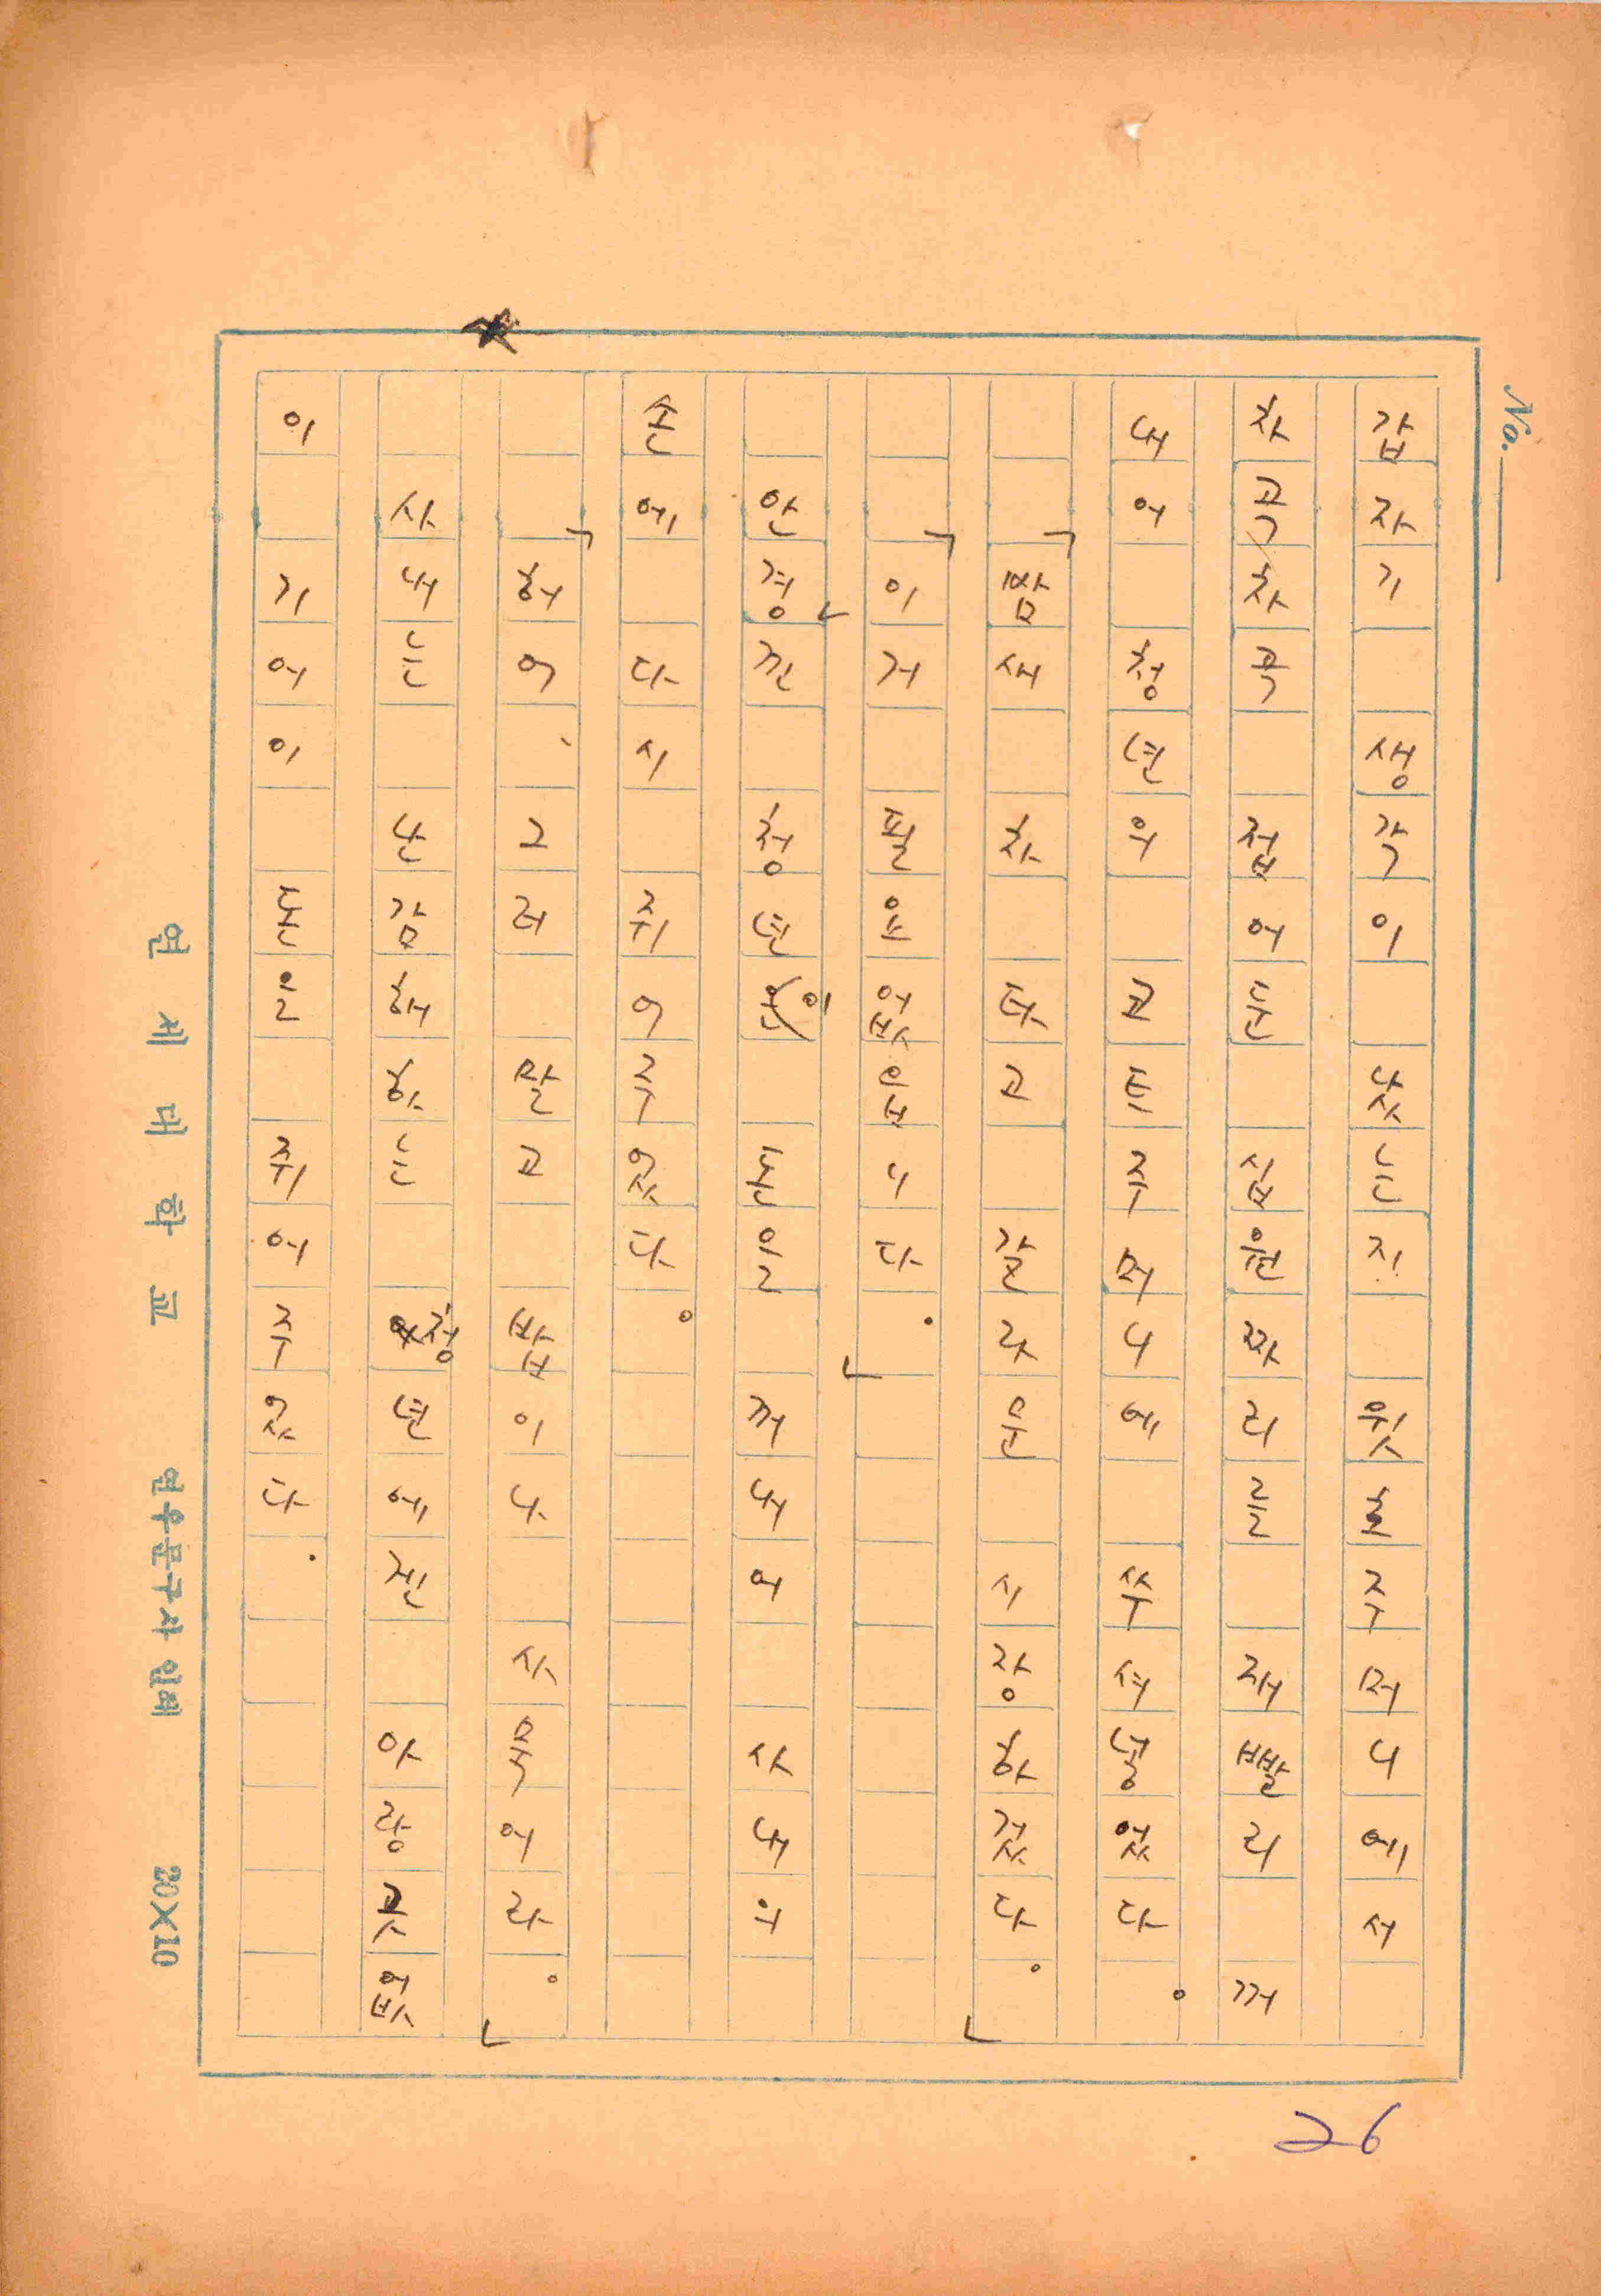 No.
갑자기 생각이 낫는지 윗호주머니에서
차곡차곡 접어둔 십원짜리를 재빨리 꺼
내어 청년의 코트주머니에 쑤셔넣었다。
「밤새 차타고 갈라믄 시장하겄다。」
「이거 필요없읍니다.」
안경낀 청년이 돈을 꺼내어 사내의
손에 다시 쥐어주었다。
「허어, 그러 말고 밥이나 사묵어라。」
사내는 난감해하는 청년에겐 아랑곳없
이 기어이 돈을 쥐어주었다.
연세대학교 연우문구사 인쇄 20×10
26